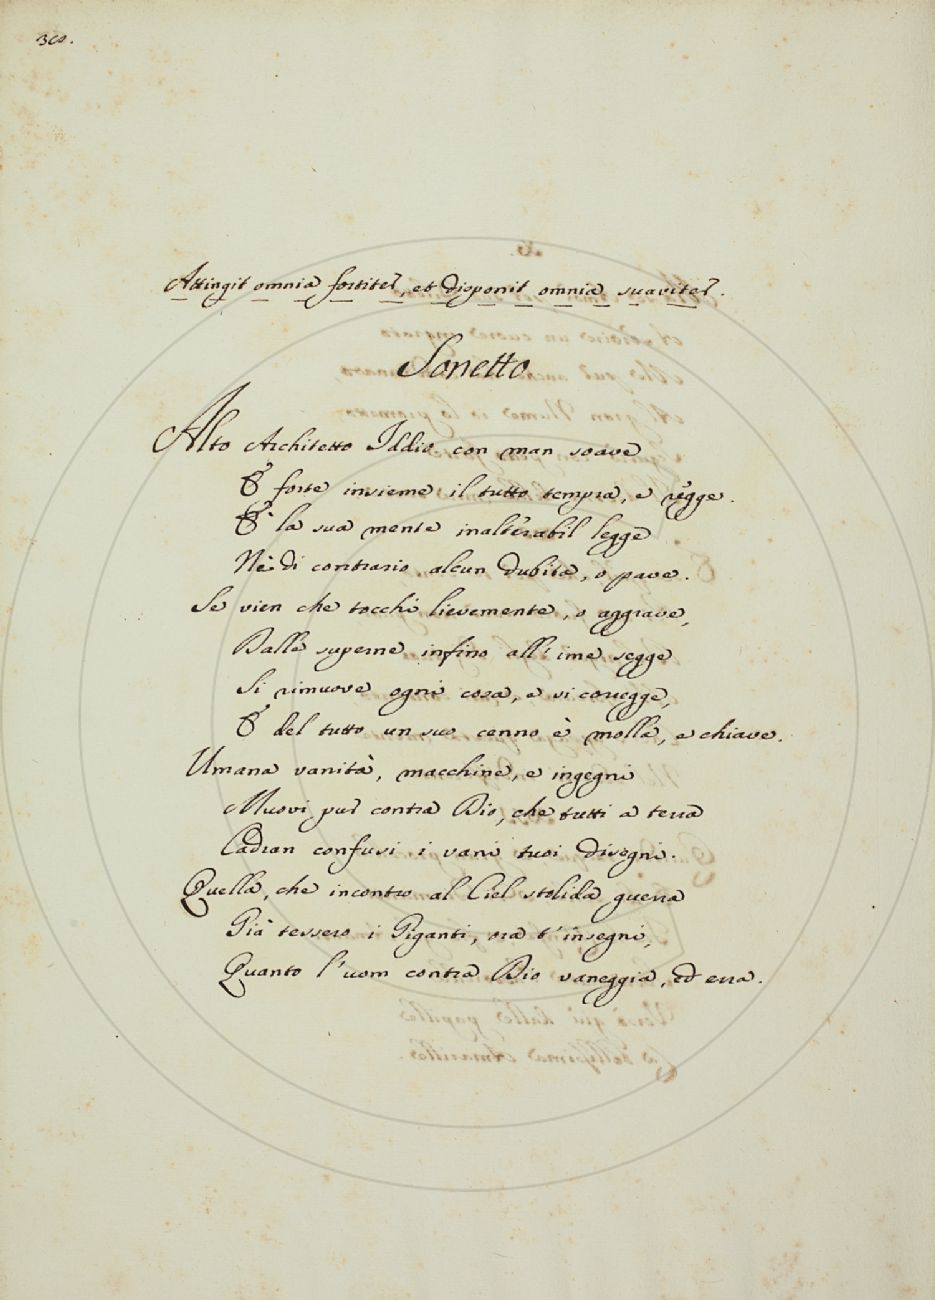 Attingit omnia fortiter, et disponit omnia suaviter.
Sonetto
Alto Architetto Iddio con man soave
E forte insieme il tutto tempra, e regge.
E la sua mente inalterabil legge
Nè di contrario alcun dubita, o pave.
Se vien che tocchi lievemente, o aggrave,
Dalle superne infino all'ime segge
Si rimuove ogni cosa, e si corregge,
E del tutto un suo cenno è molla, e chiave.
Umana vanità, macchine, e ingegni
Muovi pur contra Dio, che tutti a terra
Cadran confusi i vani tuoi disegni.
Quella, che incontro al Ciel stolida guerra
Già tessero i Giganti, ora t'insegni,
Quanto l'uom contra Dio vaneggia, ed erra.